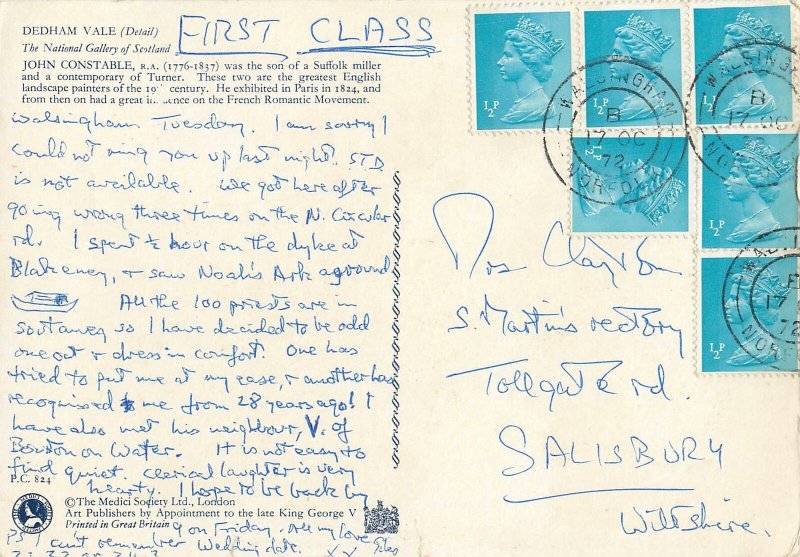 FIRST CLASS
DEDHAM VALE (Detail)
The National Gallery of Scotland
JOHN CONSTABLE, R.A. (1776-1837) was the son of a Suffolk miller
and a contemporary of Turner. These two are the greatest English
landscape painters of the 19 century. He exhibited in Paris in 1824, and
from then on had a great in ence on the French Romantic Movement.
Walsingham Tuesday. I am sorry I
could not ring you up last night. STD
is not available. We got here after
going wrong three times on the N. Circular
rd. I spent ½ hour on the dyke at
Blakeney, & saw Noah's Ark aground
All the 100 priests are in
soutanes so I have decided to be odd
one out & dress in comfort. One has
tried to put me at my ease, & another has
recognised me from 28 years ago! I
have also met his neighbour, V. of
Bourton on Water. It is not easy to
find quiet. Clerical laughter is very
hearty. I hope to be back by
9 on Friday. All my love
Giles
PS I can't remember Wedding date.
P.C. 824
© The Medici Society Ltd., London
Art Publishers by Appointment to the late King George V
Printed in Great Britain
Mrs Clayton
S. Martin's rectory
Tollgate rd.
SALISBURY
Wiltshire.
½P
½P
½P
½P
½P
½P
WALSINGHAM
B
17 OC
72
NORFOLK
WALSINGHAM
B
17 OC
NOR
WAL
17
72
NORF